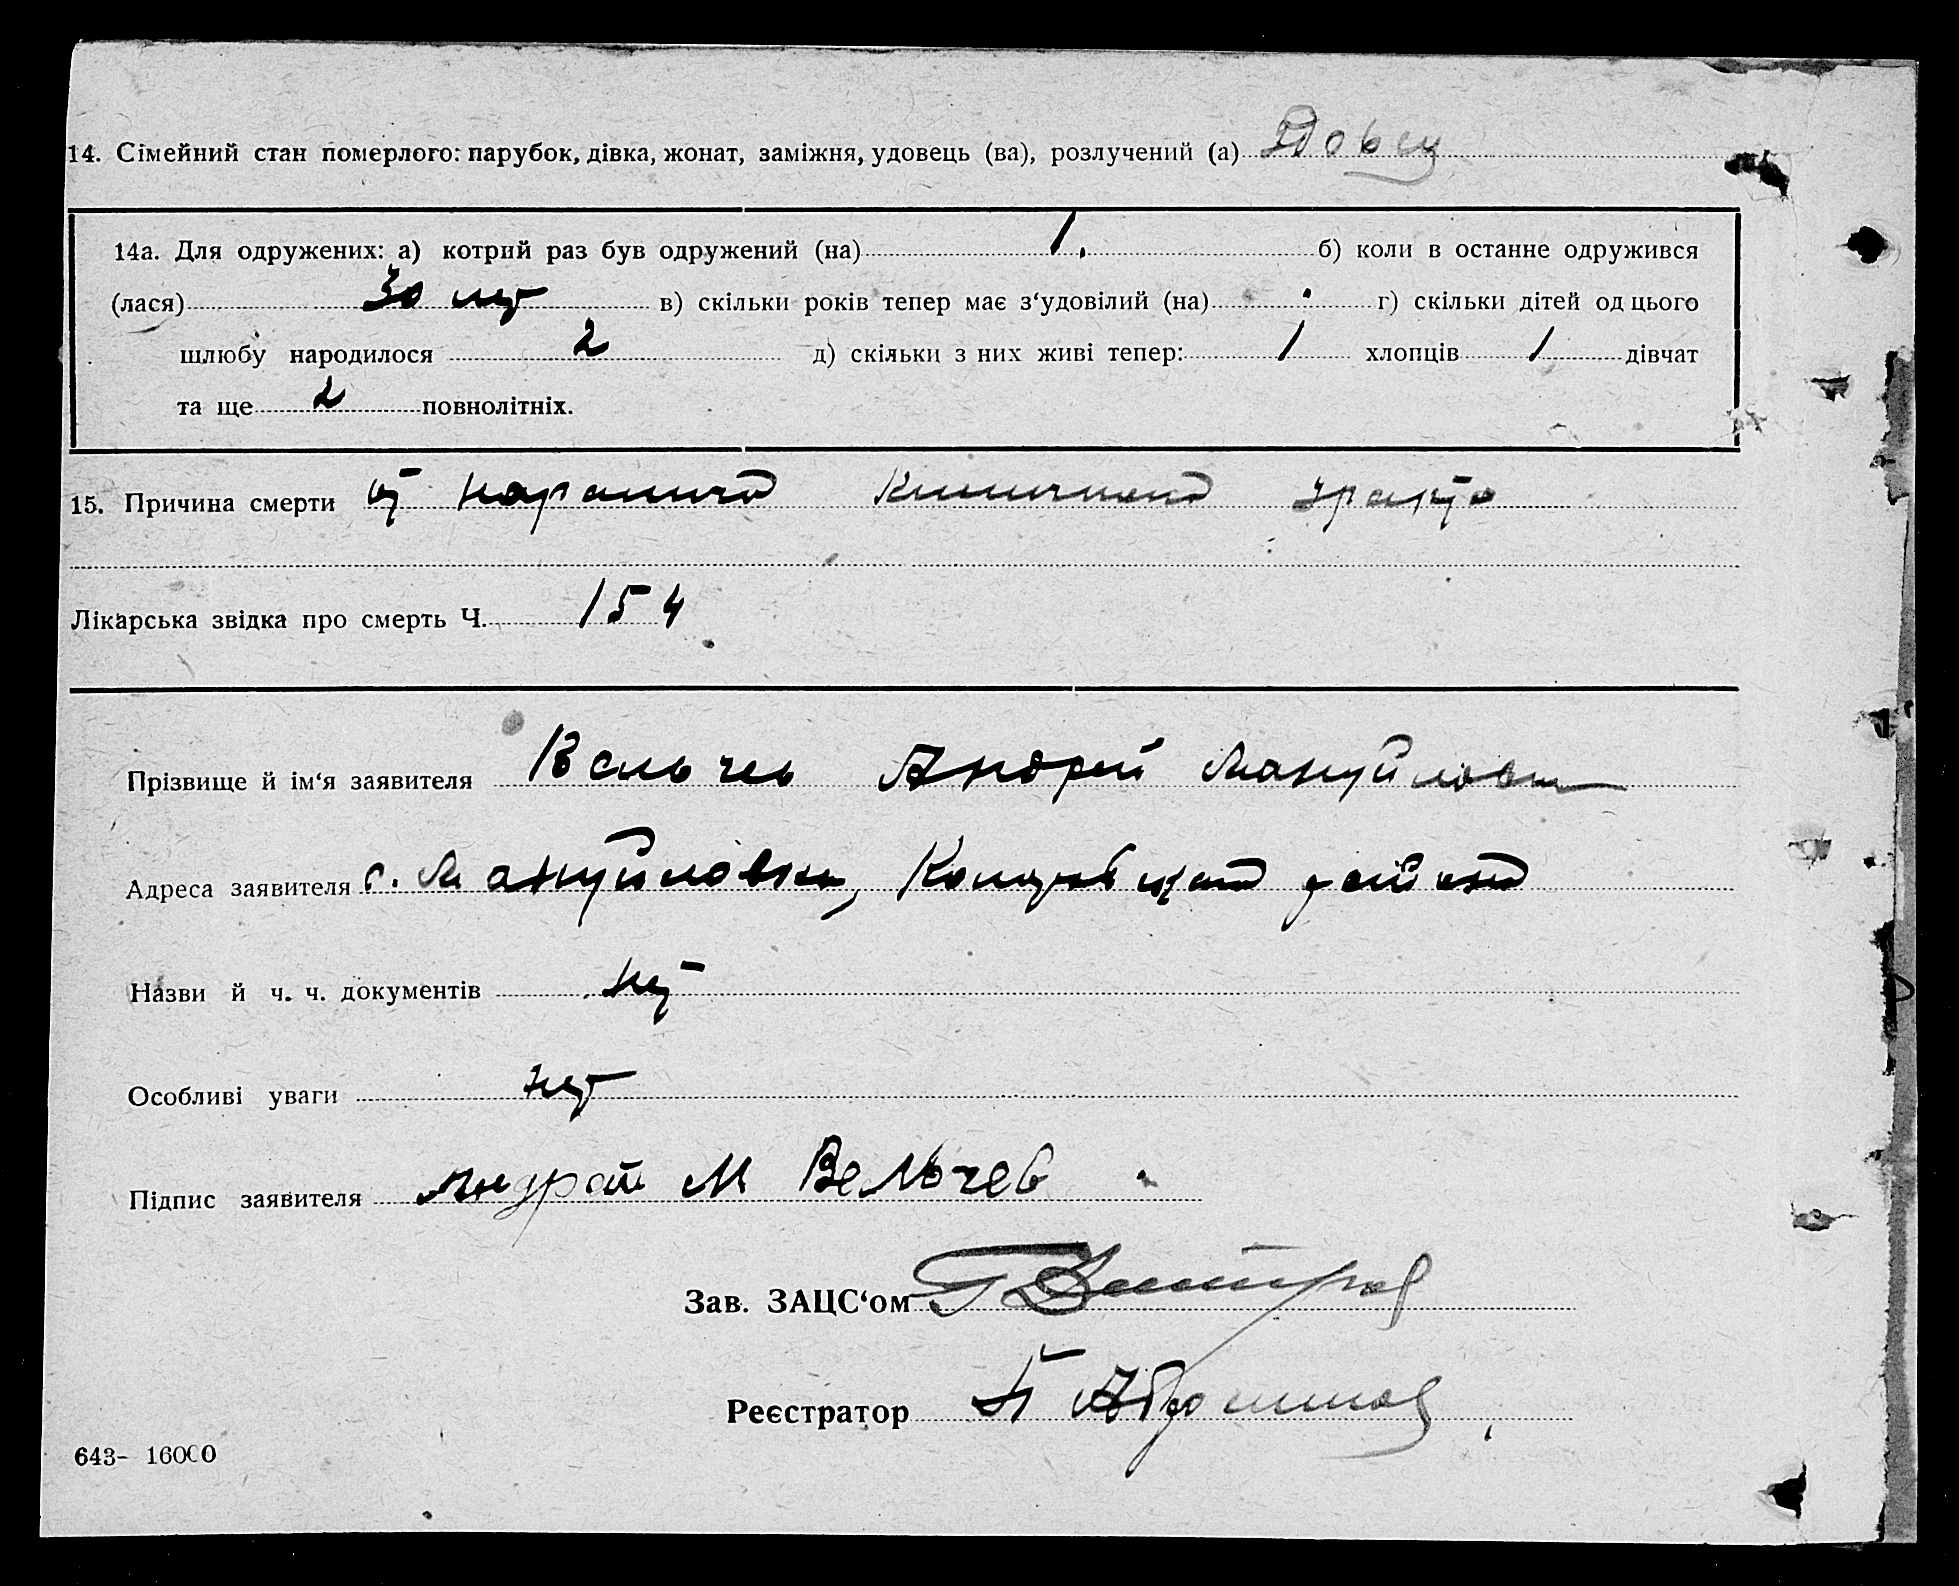 14. Сімейний стан померлого: парубок, дівка, жонат, заміжня, удовець (ва), розлучений (а) Вдовец
14а. Для одружених: а) котрий раз був одружений (на) 1. б) коли в останнє одружився
(лася) 30 лет в) скільки років тепер має з‘удовілий (на) г) скільки дітей од цього
шлюбу народилося 2 д) скільки з них живі тепер: 1 хлопців 1 дівчат
та ще 2 повнолітніх.
15. Причина смерти от паралича кишечного тракта
Лікарська звідка про смерть Ч. 154
Прізвище й ім‘я заявителя Вельчев Андрей Мануйлович
Адреса заявителя с. Мануйловка, район
Назви й ч. ч. документів нет
Особливі уваги нет
Підпис заявителя М Вельчев
Зав. ЗАЦС‘ом
Реєстратор
643- 16000